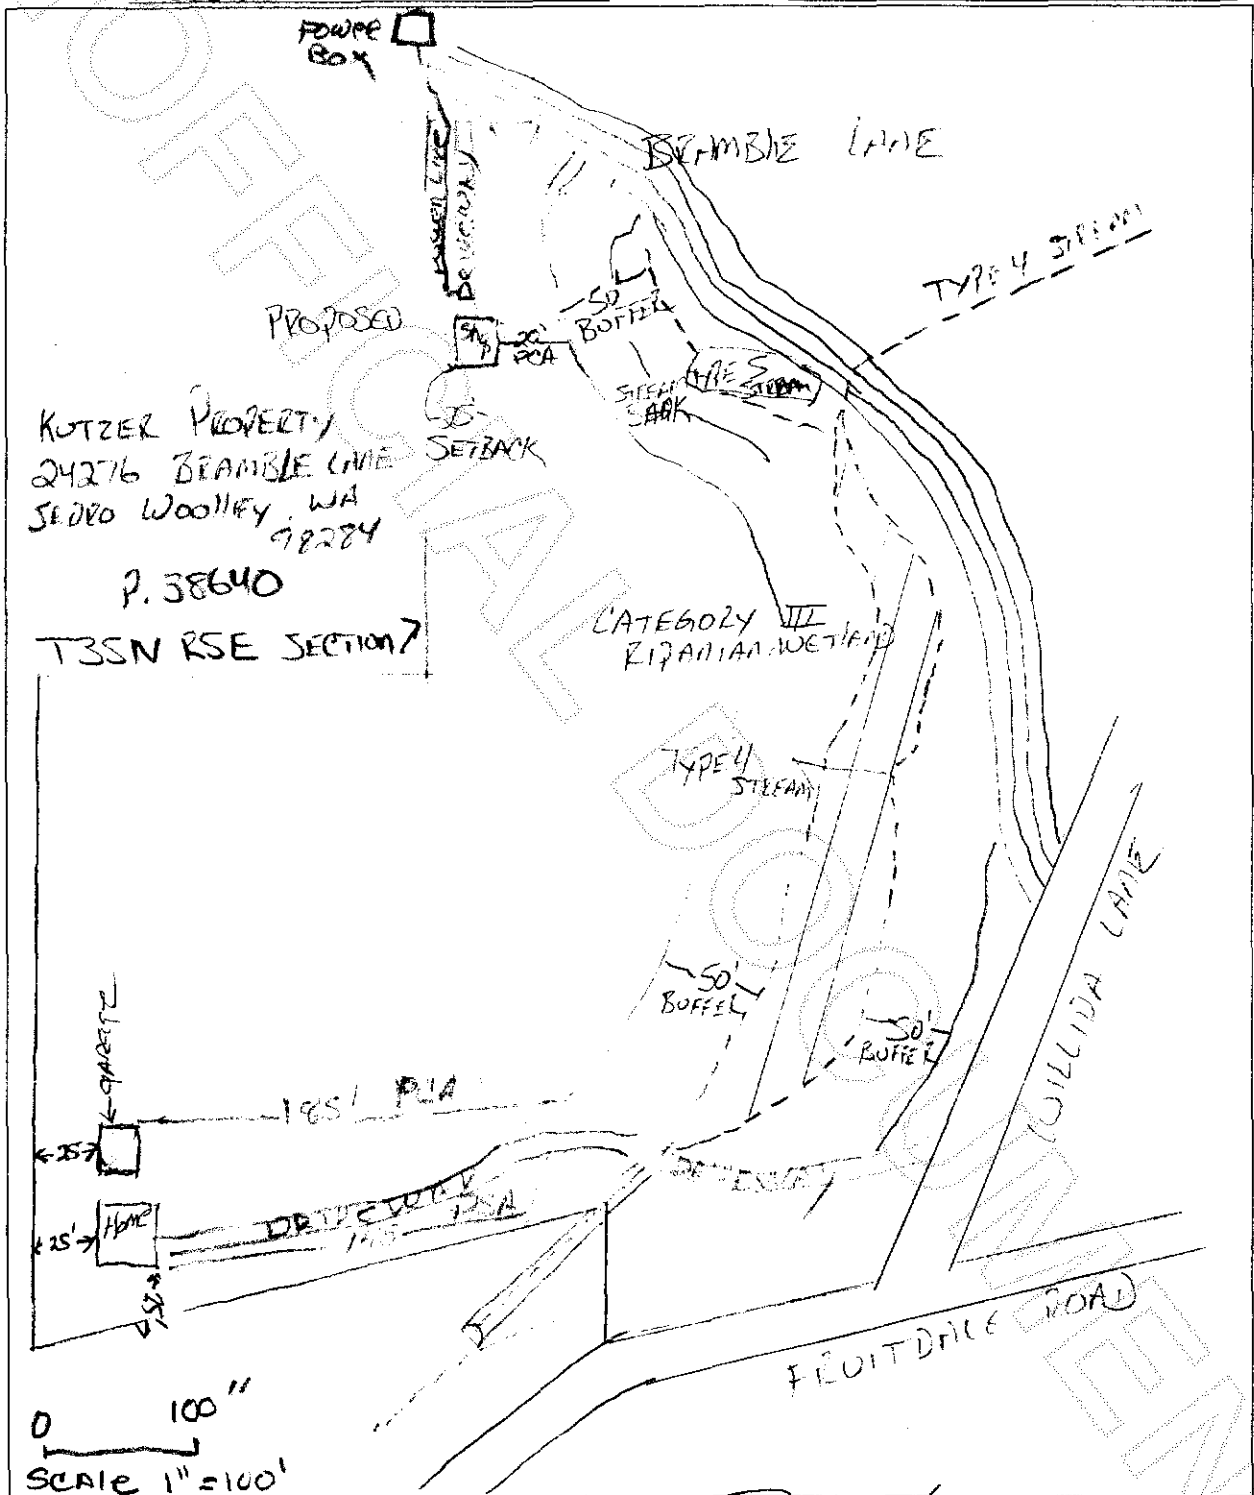 POWER
BOX
BRAMBLE LANE
POWER LINE
DRIVEWAY
TYPE 4 STREAM
PROPOSED
SHOP
20'
PCA
50'
BUFFER
TYPE 5
STREAM
STREAM
BANK
SETBACK
KUTZER PROPERTY
24276 BRAMBLE LANE
SEDRO WOOLLEY, WA
98284
P. 38640
T35N R5E SECTION 7
CATEGORY III
RIPARIAN WETLAND
TYPE 4
STREAM
50'
BUFFER
50'
BUFFER
WILLIDA LANE
185' PCA
25'
HOME
25'
25'
DRIVEWAY
PCA
DRIVEWAY
FRUITDALE ROAD
0 100"
SCALE 1"=100'
UNOFFICIAL DOCUMENT